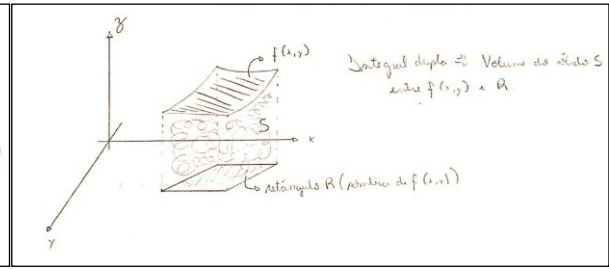 z
f(x,y)
Integral dupla ⇒ Volume do sólido S
entre f(x,y) e R.
S
x
retângulo R (sombra de f(x,y))
y